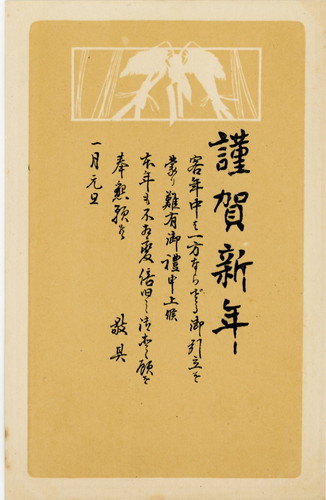 謹賀新年
客年中は一方ならざる御引立を
蒙り難有御禮申上候
本年も不相変倍旧之御愛顧を
奉懇願候
敬具
一月元旦